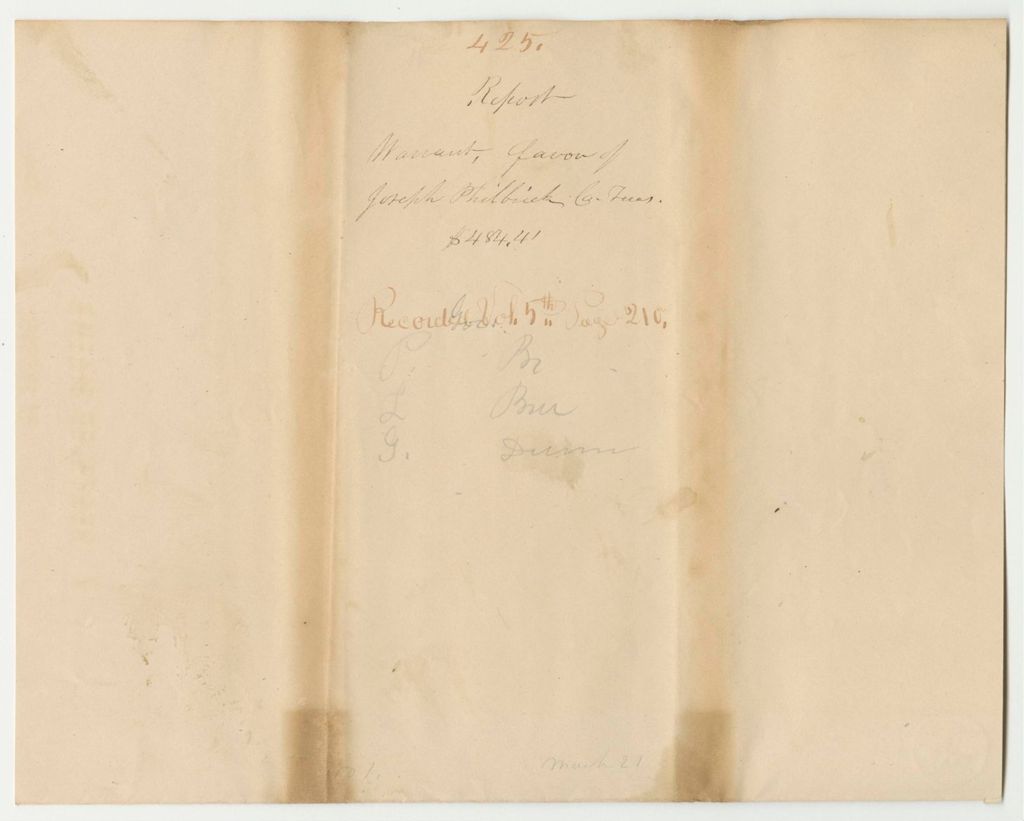 425.
Report
Warrant, favor of
Joseph Philbrick Co. Treas.
$484.41
Recorded Vol. 5th Page 210.
Gov.
P. Br
L Bur
G. Dunn
March 21